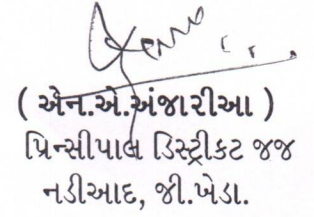 ( એન.એ.અંજારીઆ )
પ્રિન્સીપાલ ડિસ્ટ્રીકટ જજ
નડીઆદ, જી.ખેડા.